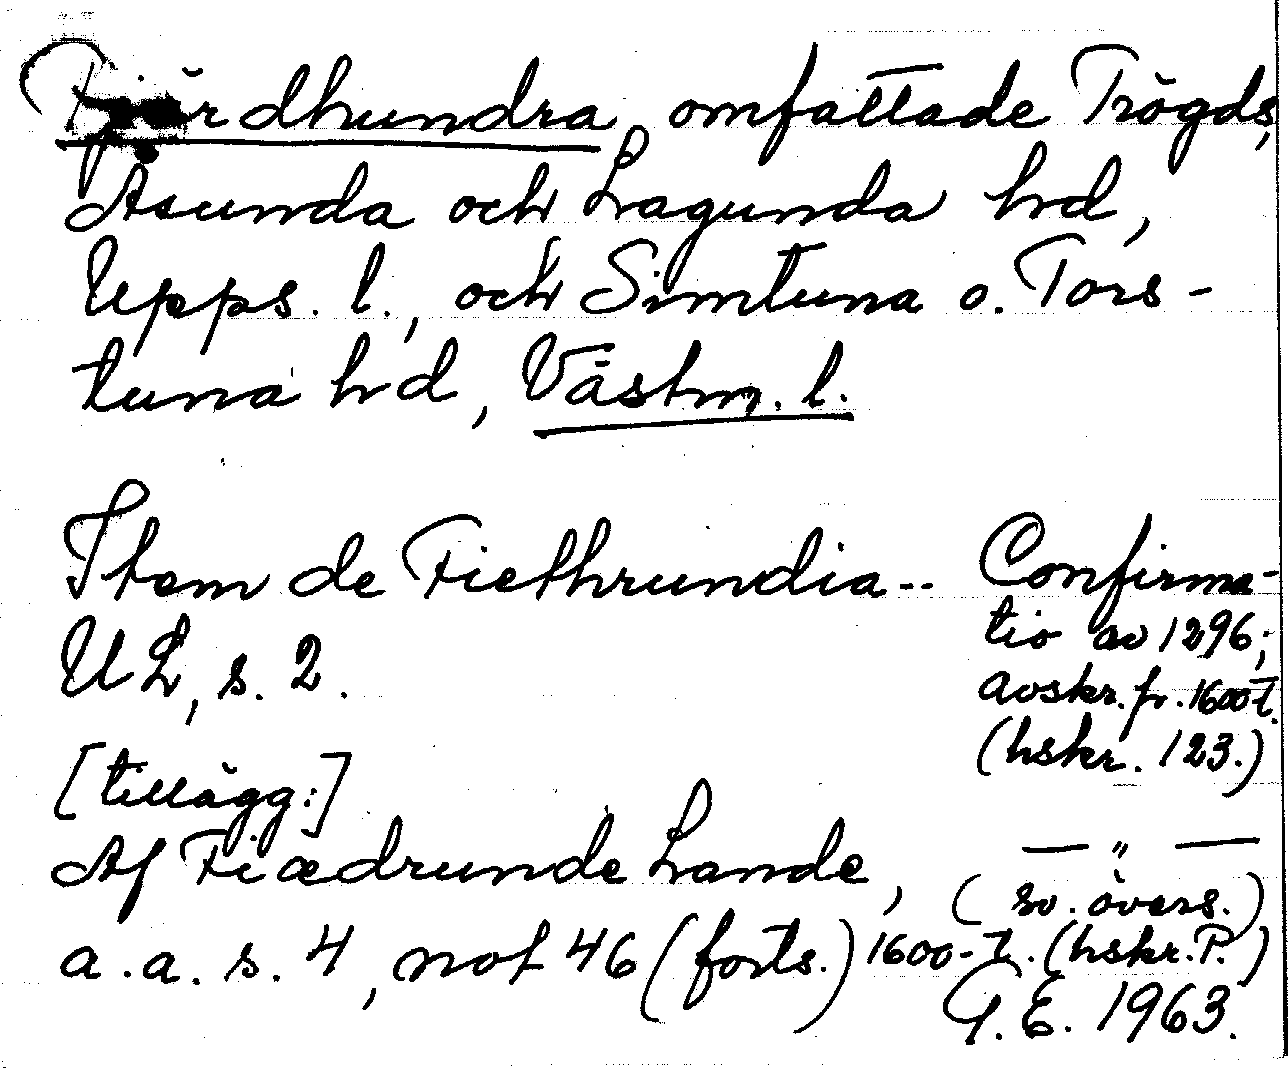 Fjärdhundra, omfattade Trögds,
Åsunda och Lagunda hd,
Upps. l., och Simtuna o. Tors-
tuna hd, Västm. l.
Item de Fiethrundia-- Confirma-
tio av 1296;
UL, s. 2.
avskr. fr. 1600-t.
(hskr. 123.)
[tillägg:]
Af Fiædrunde Lande, — " —
(sv. övers.)
a.a. s. 4, not 46 (forts.) 1600-t. (hskr. P.)
G. E. 1963.